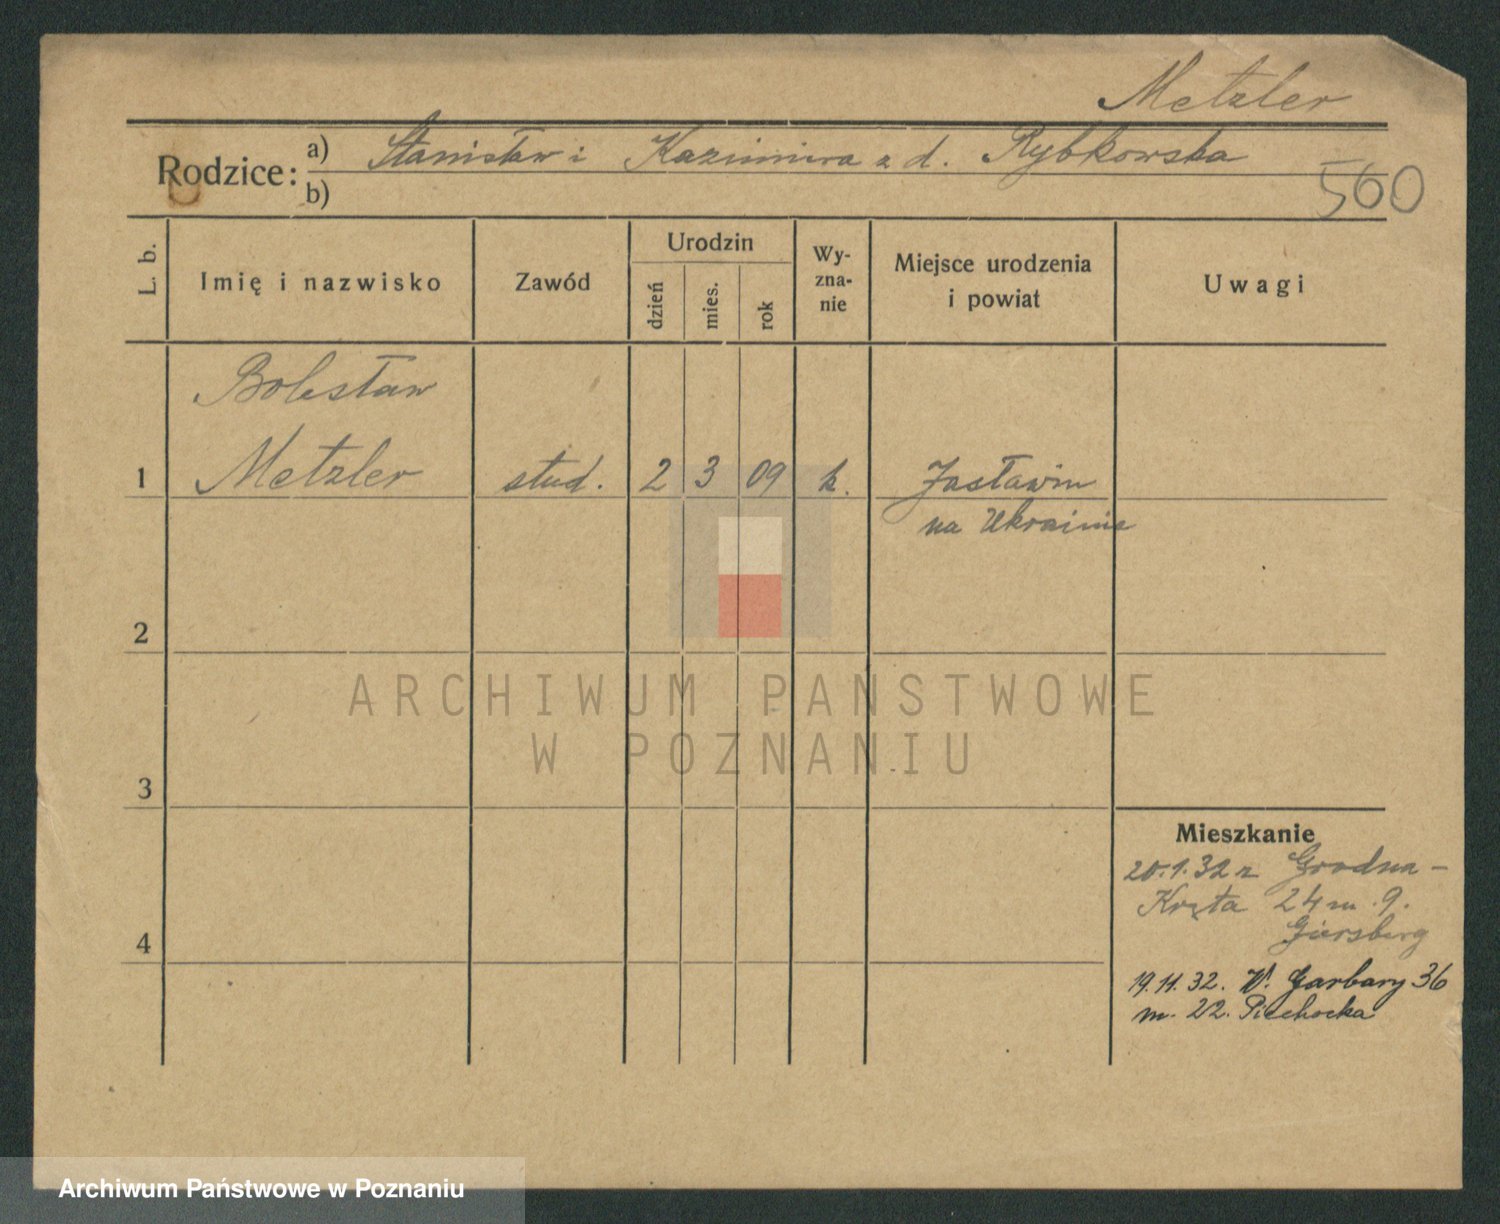 Metzler
Rodzice: a) Stanisław i Kazimiera z d. Rybkowska
b)
560
L. b.
Imię i nazwisko
Zawód
Urodzin
dzień
mies.
rok
Wy-
zna-
nie
Miejsce urodzenia
i powiat
Uwagi
Bolesław
1 Metzler stud. 2 3 09 k. Zasławin
na Ukrainie
2
3
4
Mieszkanie
20.1.32 z Grodna -
Kręta 24 m. 9.
Giersberg
19.11.32. W. Garbary 36
m. 22. Piechocka
ARCHIWUM PAŃSTWOWE
W POZNANIU
Archiwum Państwowe w Poznaniu